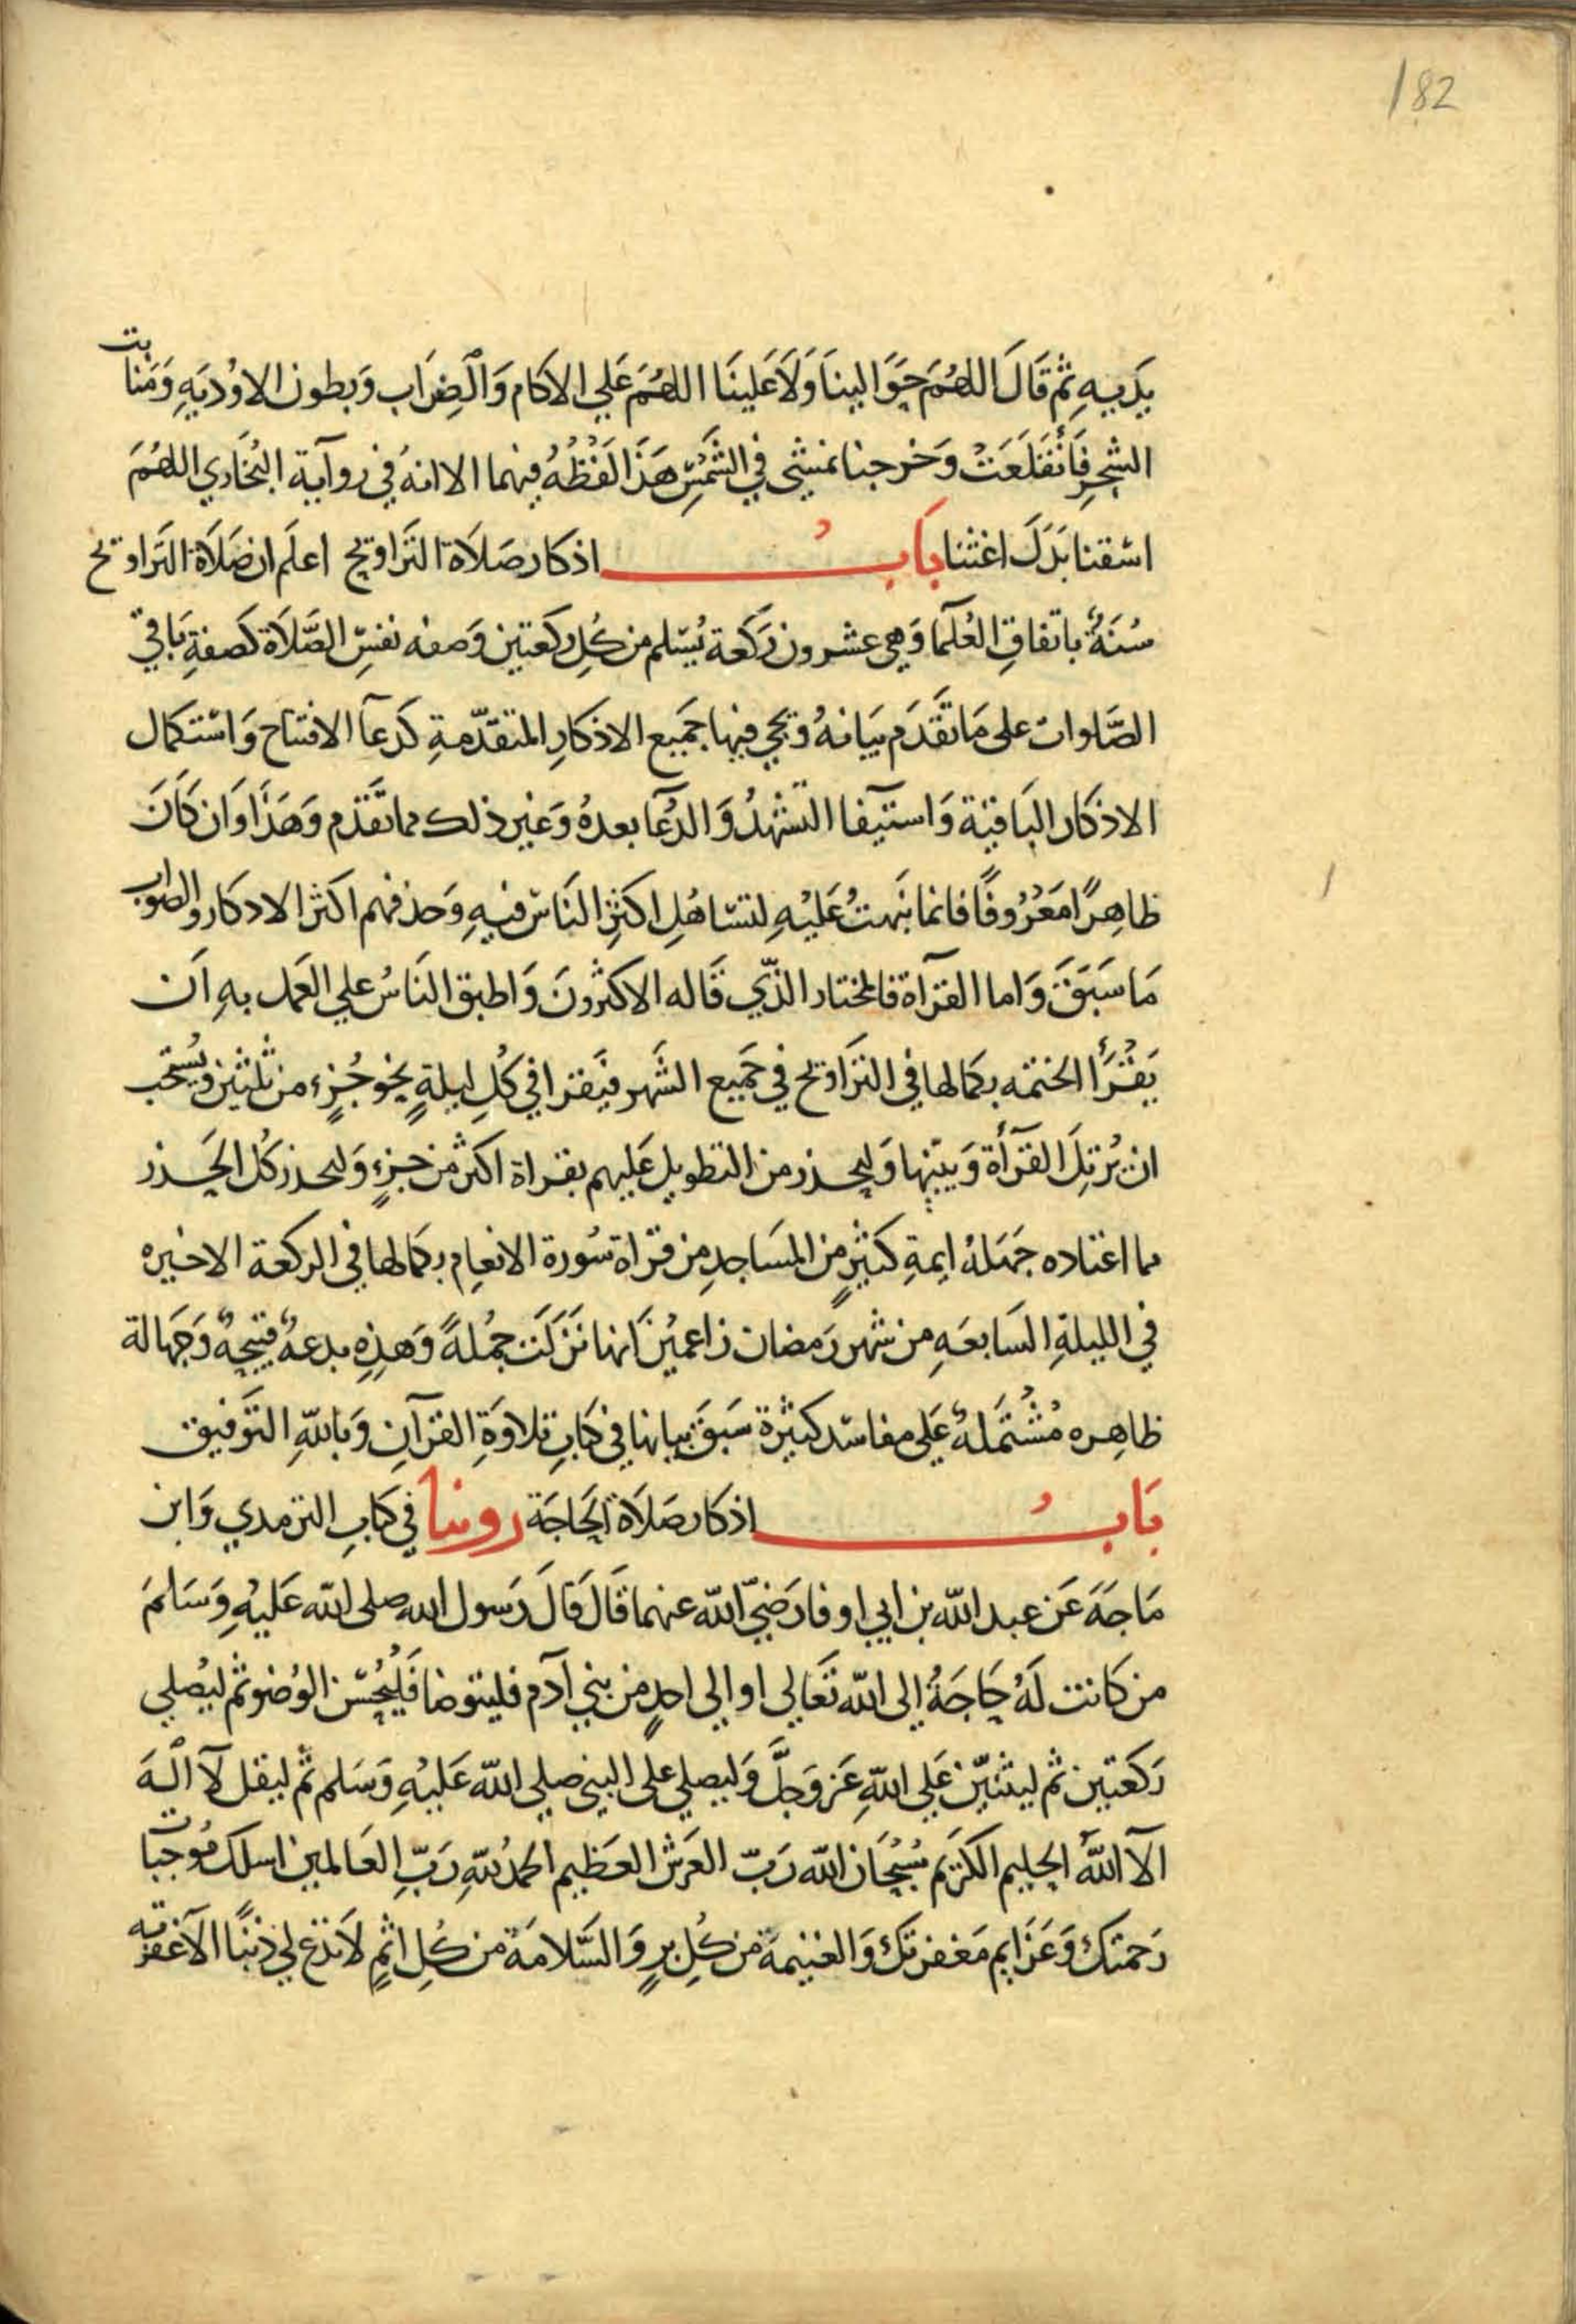 182
يَدَيهِ ثم قَالَ اللهُمَ حَوَالينَا وَلَا عَلينَا اللهُمَ عَلي الاكام وَالضِرَاب وَبطون الاوْديَهِ وَمَنابت
الشجرِ فَأنْقَلَعَتْ وَخرجنا نمشي في الشَمْسِ هَذَا لَفْظُهُ فيهما الا انهُ في روَاية البُخَاري اللهُمَ
اسقنا بَدَلَ اغثنا بَابُ اذكار صَلَاة التَراويح اعلَم ان صَلَاة التَراويح
سُنَةٌ باتفاقِ العُلَمآ وَهِي عشرون رَكعَة يُسَلم من كُلِ ركعَتين وَصفه نفسِ الصَّلَاة كَصفةِ بَاقيّ
الصَّلوات على مَا تقَدَم بيَانهُ وَيجي فيها جَميع الاذكارِ المتقدّمةِ كَدعَآ الافتتاح وَاسْتكمال
الاذكار البَاقيَة وَاستيفآ التشهُدُ وَالدعَآ بعدهُ وَغير ذلك مما تقَدَم وَهَذَا وَان كَانَ
ظاهِرًا مَعْرُوفًا فانما نبَهتُ عَليْهِ لتسَاهُلِ اكثرِ النَاسِ فيهِ وَحذفهم اكثر الادكار والصواب
مَا سَبَقَ وَاما القرآة فالمختار الذّي قَاله الاكثرُونَ وَاطبق النَاسُ علي العَمل بهِ اَن
يَقْرَأ الختمَه بكمالها في الترَاويح في جَميع الشَهر فيَقرا في كُلِ ليلةٍ نحو جُزءٍ من ثلثين ويُستحَب
ان يُرتلَ القرآة وَيبيّنها وَليحذر من التطويل عَليهم بقراة اكثر من جزءٍ وَليحذر كُل الحَذر
مما اعتاده جَهَلهُ ايمةِ كثيرٍ من المسَاجدِ من قراة سُورة الانعام بكمالها في الركعة الاخيره
في الليلةِ السَابعَهِ من شهر رَمضان زاعمينَ انها نَزَلَت جُملةً وَهذِهِ بدعهٌ قبيحهٌ وَجَهالة
ظاهِره مُشْتَمَلهٌ عَلي مفاسد كثيرة سَبقَ بيانها في كتابِ تلاوَةِ القرآنِ وَباللهِ التَوفيق
بَابُ اذكار صَلَاة الحَاجَة روينا في كتابِ الترمدي وَابن
مَاجَهَ عَن عبد الله بن ابي اوفا رَضيَ الله عنهما قَالَ قَالَ رَسول الله صلى الله عَليْهِ وَسَلمَ
من كَانت لَهُ حَاجَةٌ إلى الله تَعَالي او الي احدٍ من بني آدم فليتوضا فَلْيُحْسّن الوُضو ثم ليُصلي
رَكعَتين ثم ليثنيّن عَلي اللهِ عَز وَجلَّ وَليصلي على النبي صلي الله عَليْهِ وَسَلم ثم ليقل لآ الٰه
الآ اللهُ الحليم الكريَم سُبْحَان الله رَبّ العَرش العَظيم الحمدُ للهِ رَبِّ العَالمين اسلك مُوجبات
رَحمتك وَعَزَايم مَغفرتك وَالغنيمة من كُلِ برٍ وَالسَّلامَة من كُلِ اثمٍ لَا تدَع لي ذنبًا الآ غفرته